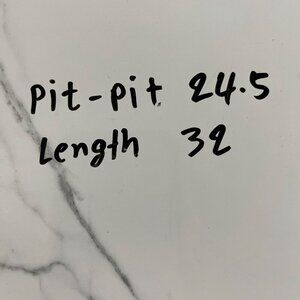 Pit-Pit 24.5
Length 32